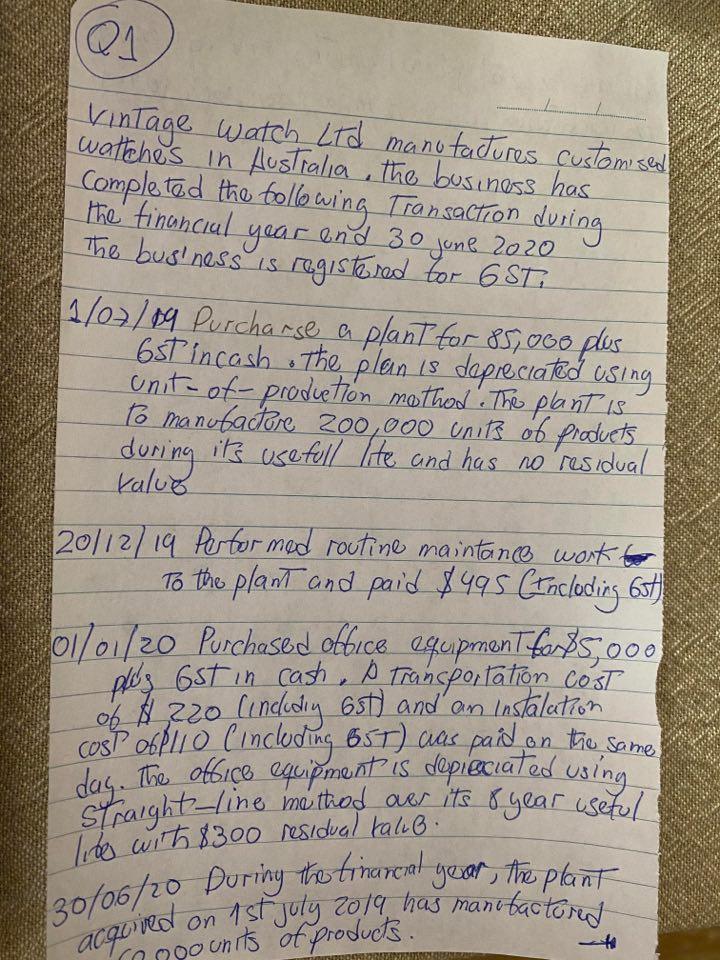 Q1
/ /
Vintage Watch Ltd manufactures customised
wattches in Australia. the business has
Completed the following Transaction during
the financial year end 30 june 2020
The business is registered for GST.
1/07/19 Purcharse a plant for 85,000 plus
GST incash. The plan is depreciated using
unit-of-production method. The plant is
To manufactore 200,000 units of products
during its usefull life and has no residual
value
20/12/19 Performed routine maintance work
To the plant and paid $495 (Including Gst)
01/01/20 Purchased office equipment for $5,000
plus GST in cash. A Transportation cost
of $220 (including GST) and an instalation
cost of $110 (including GST) was paid on the same
day. The office equipment is depreciated using
straight-line method over its 8 year useful
life with $300 residual value.
30/06/20 During the financial year, the plant
acquired on 1st july 2019 has manufactured
units of products.